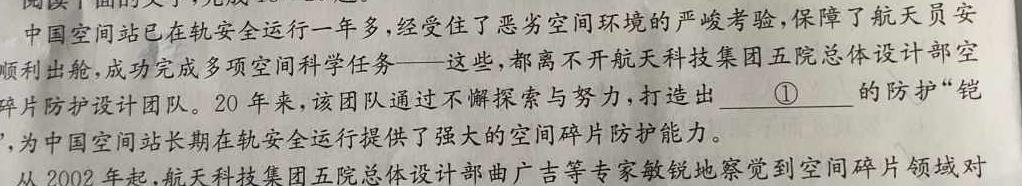 中国空间站已在轨安全运行一年多,经受住了恶劣空间环境的严峻考验,保障了航天员安
顺利出舱,成功完成多项空间科学任务——这些,都离不开航天科技集团五院总体设计部空
碎片防护设计团队。20 年来,该团队通过不懈探索与努力,打造出 ① 的防护“铠
”,为中国空间站长期在轨安全运行提供了强大的空间碎片防护能力。
从 2002 年起,航天科技集团五院总体设计部曲广吉等专家敏锐地察觉到空间碎片领域对